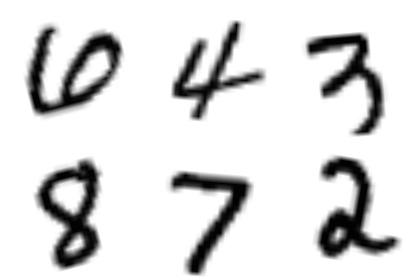 6 4 3
8 7 2